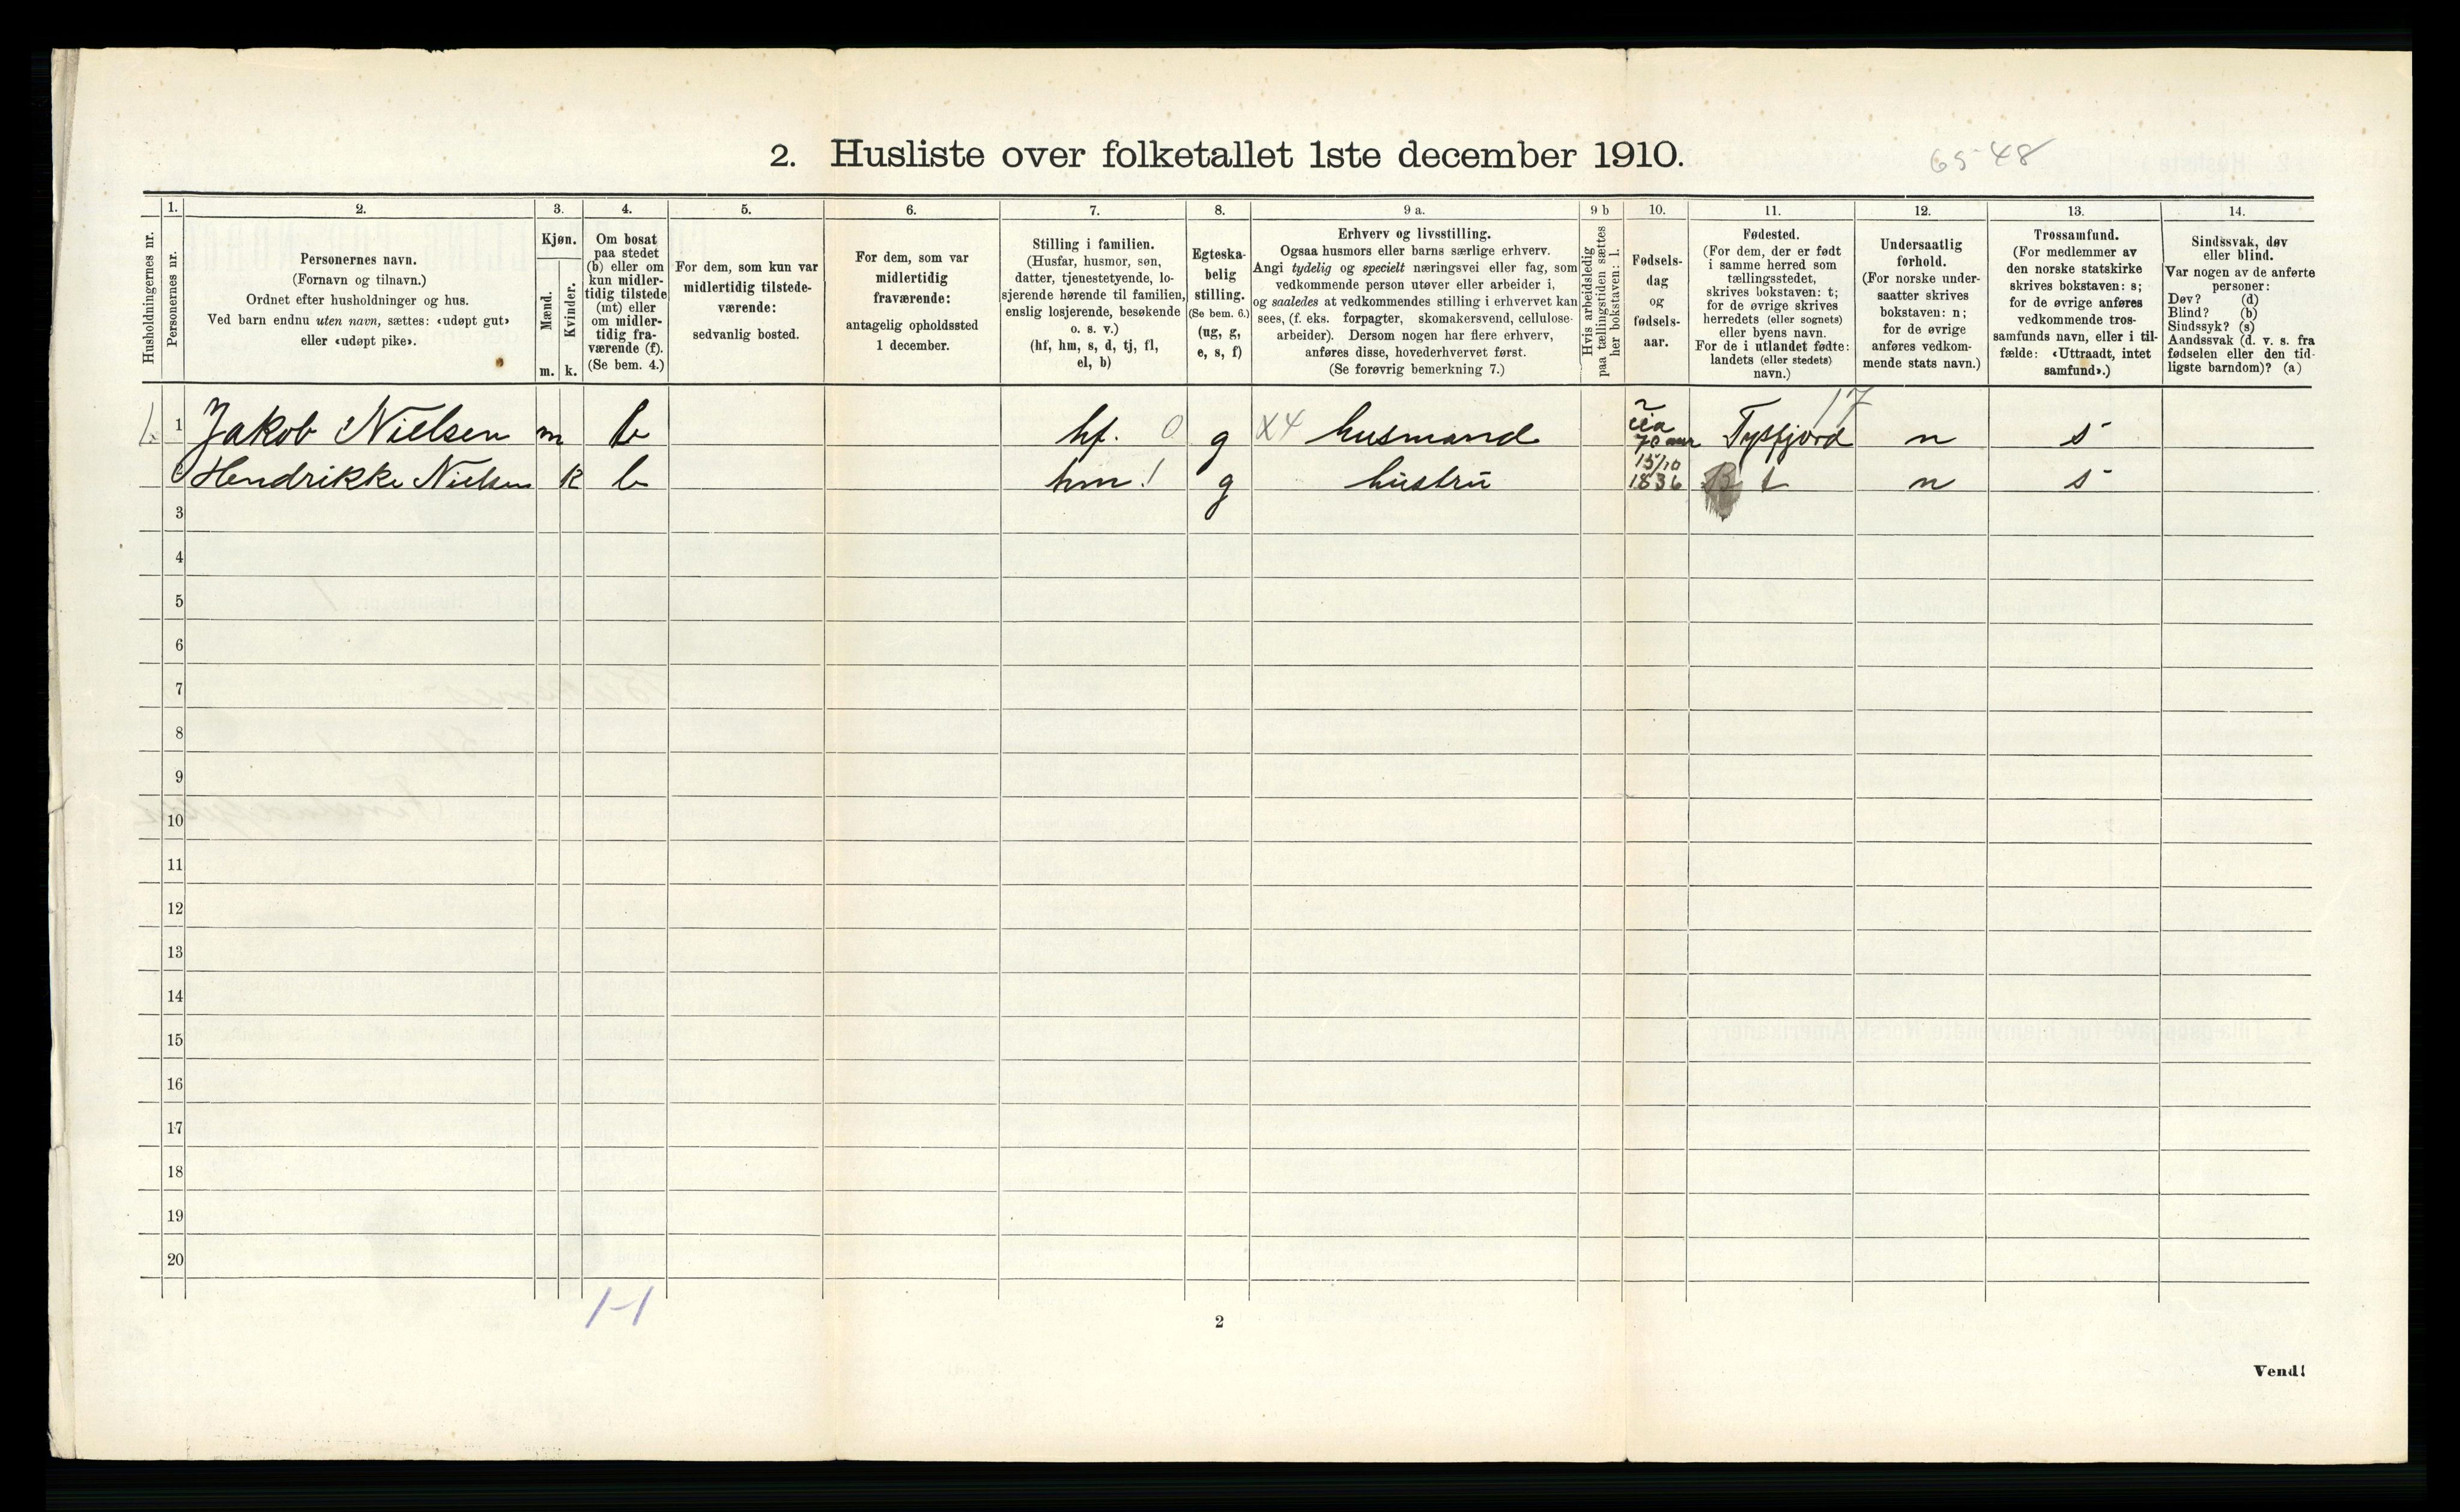 2. Husliste over folketallet 1ste december 1910.
65 48
Husholdningernes nr.
1.
Personernes nr.
2.
Personernes navn.
(Fornavn og tilnavn.)
Ordnet efter husholdninger og hus.
Ved barn endnu uten navn, sættes: «udøpt gut»
eller «udøpt pike».
3.
Kjøn.
Mænd.
Kvinder.
m. k.
4.
Om bosat
paa stedet
(b) eller om
kun midler-
tidig tilstede
(mt) eller
om midler-
tidig fra-
værende (f).
(Se bem. 4.)
5.
For dem, som kun var
midlertidig tilstede-
værende:
sedvanlig bosted.
6.
For dem, som var
midlertidig
fraværende:
antagelig opholdssted
1 december.
7.
Stilling i familien.
(Husfar, husmor, søn,
datter, tjenestetyende, lo-
sjerende hørende til familien,
enslig losjerende, besøkende
o. s. v.)
(hf, hm, s, d, tj, fl,
el, b)
8.
Egteska-
belig
stilling.
(Se bem. 6.)
(ug, g,
e, s, f)
9 a.
Erhverv og livsstilling.
Ogsaa husmors eller barns særlige erhverv.
Angi tydelig og specielt næringsvei eller fag, som
vedkommende person utøver eller arbeider i,
og saaledes at vedkommendes stilling i erhvervet kan
sees, (f. eks. forpagter, skomakersvend, cellulose-
arbeider). Dersom nogen har flere erhverv,
anføres disse, hovederhvervet først.
(Se forøvrig bemerkning 7.)
9 b
Hvis arbeidsledig
paa tællingstiden sættes
her bokstaven: l.
10.
Fødsels-
dag
og
fødsels-
aar.
11.
Fødested.
(For dem, der er født
i samme herred som
tællingsstedet,
skrives bokstaven: t;
for de øvrige skrives
herredets (eller sognets)
eller byens navn.
For de i utlandet fødte:
landets (eller stedets)
navn.)
12.
Undersaatlig
forhold.
(For norske under-
saatter skrives
bokstaven: n;
for de øvrige
anføres vedkom-
mende stats navn.)
13.
Trossamfund.
(For medlemmer av
den norske statskirke
skrives bokstaven: s;
for de øvrige anføres
vedkommende tros-
samfunds navn, eller i til-
fælde: «Uttraadt, intet
samfund».)
14.
Sindssvak, døv
eller blind.
Var nogen av de anførte
personer:
Døv? (d)
Blind? (b)
Sindssyk? (s)
Aandssvak (d. v. s. fra
fødselen eller den tid-
ligste barndom)? (a)
1 Jakob Nielsen m b hf. 0 g X4 husmand cia 70 aar Tysfjord 17 n s
Hendrikke Nielsen k b hm ! g hustru 15/10 1836 t n s
3
4
5
6
7
8
9
10
11
12
13
14
15
16
17
18
19
20
1-1
2
Vend!